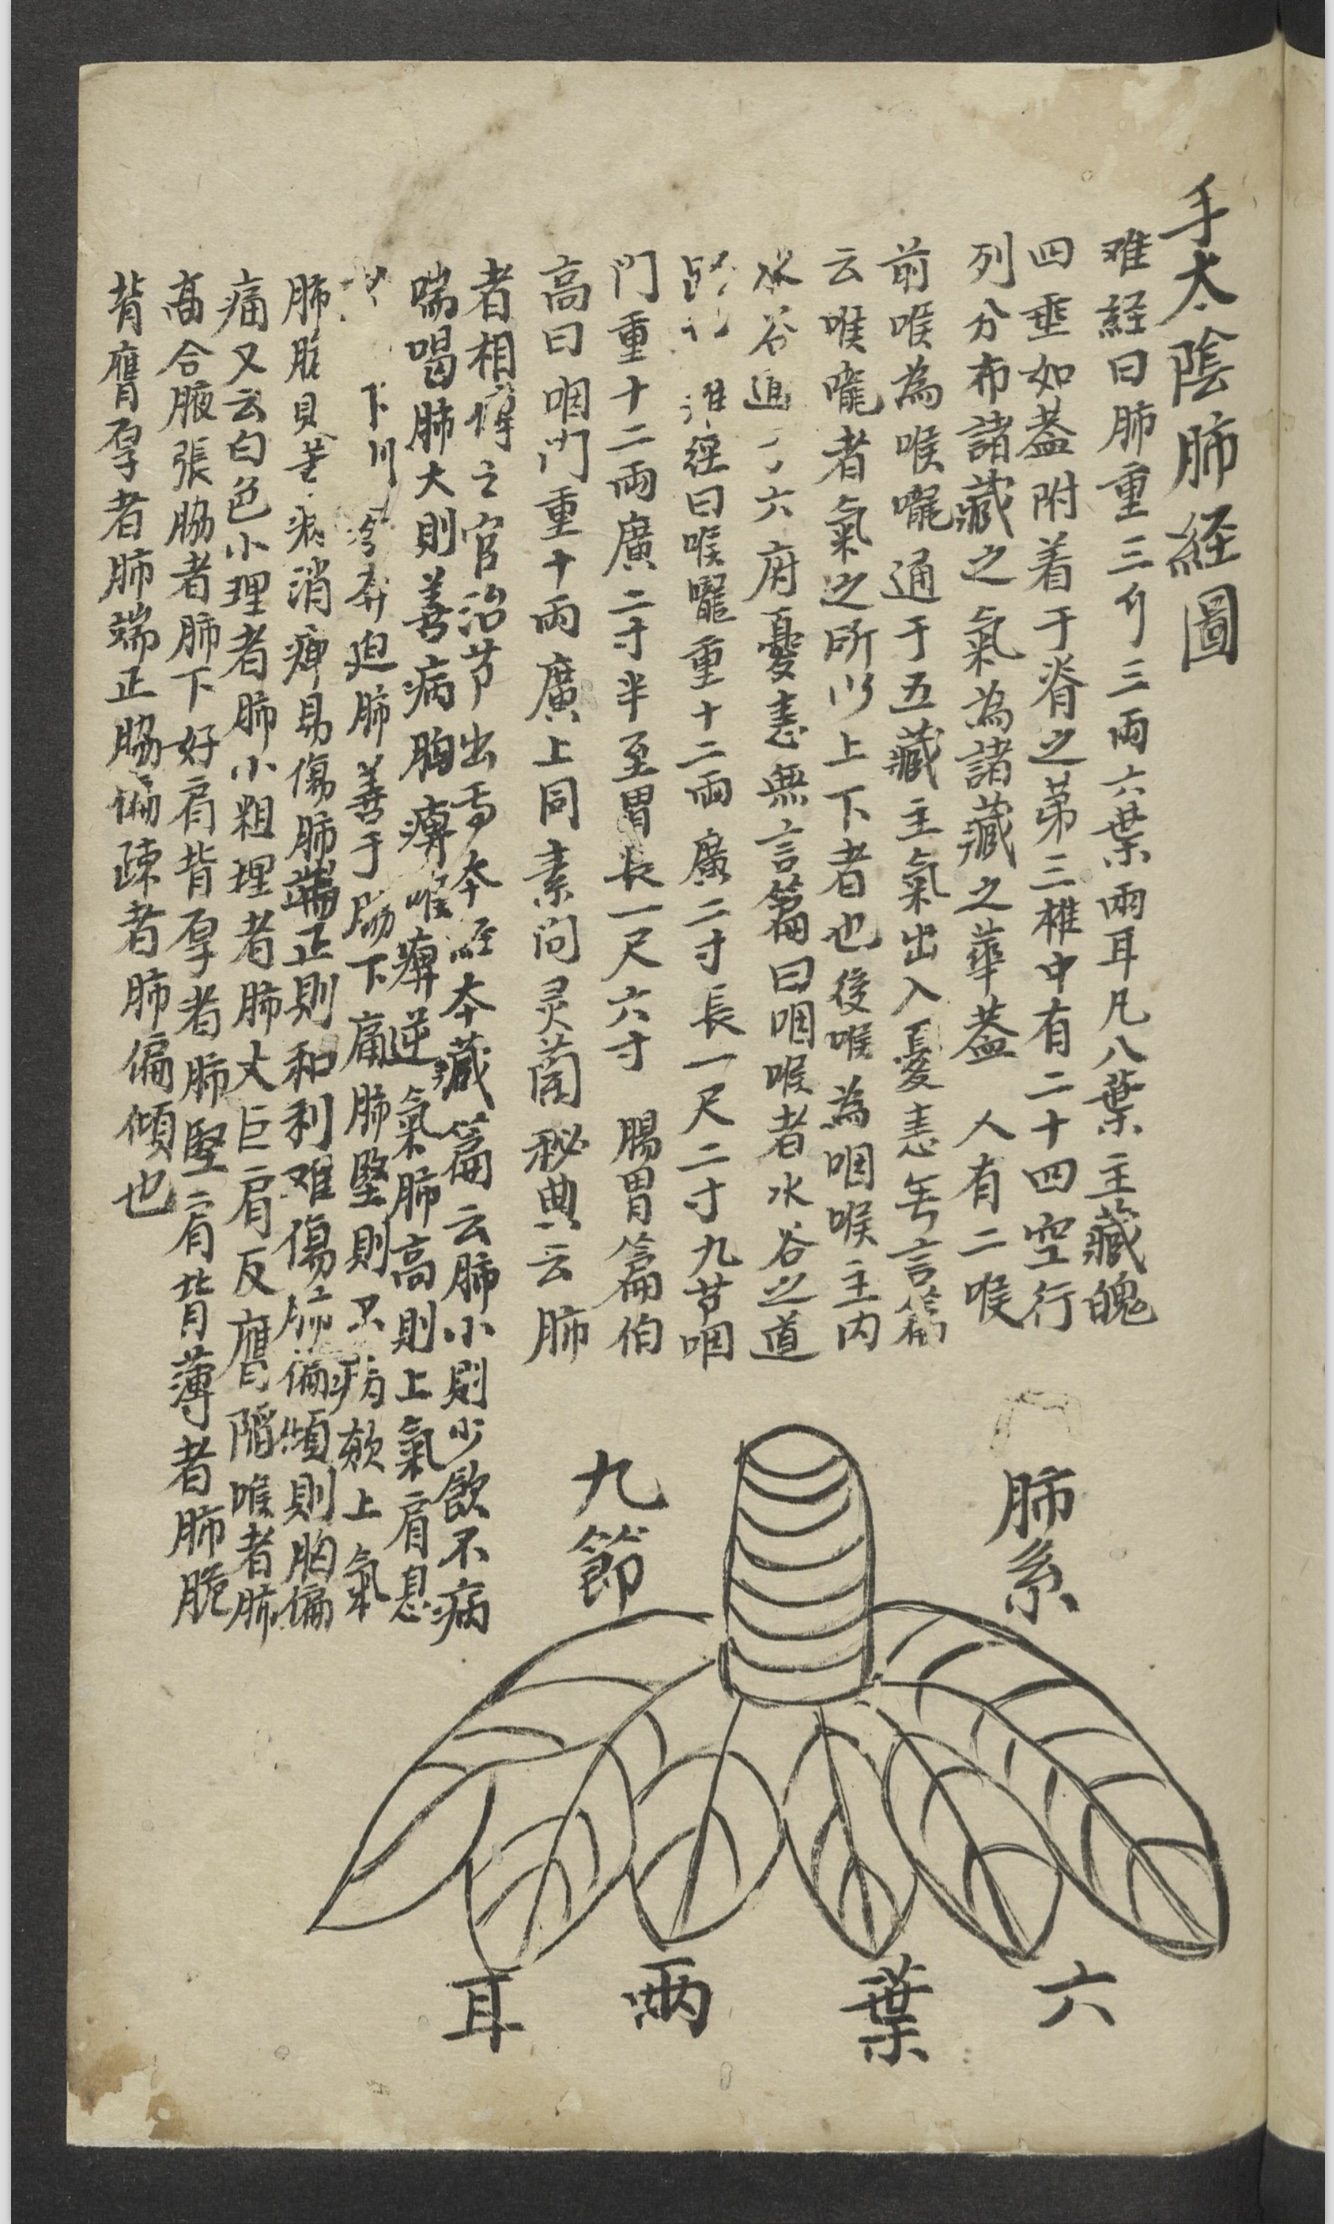 手太陰肺経圖
难経曰肺重三斤三兩六葉兩耳凡八葉主藏魄
四垂如盖附着于脊之第三椎中有二十四空行
列分布諸藏之氣為諸藏之華盖 人有二喉
前喉為喉嚨通于五藏主氣出入憂恚无言篇
云喉嚨者氣之所以上下者也後喉為咽喉主内
水谷通于六府憂恚無言篇曰咽喉者水谷之道
路 难經曰喉嚨重十二兩廣二寸長一尺二寸九节咽
門重十二兩廣二寸半至胃長一尺六寸 腸胃篇伯
高曰咽門重十兩廣上同素问灵蘭秘典云肺
者相傅之官治节出焉本經本藏篇云肺小則少飲不病
喘喝肺大則善病胸痹喉痹逆氣肺高則上氣肩息
下 奔迫肺善于胁下痛肺堅則不病欬上氣
肺脆 病消痺易傷肺端正則和利难傷肺偏傾則胸偏
痛又云白色小理者肺小粗理者肺大巨肩反膺陷喉者肺
高合腋張胁者肺下好肩背厚者肺堅肩背薄者肺脆
背膺厚者肺端正胁偏疎者肺偏傾也
肺系
九節
六葉兩耳